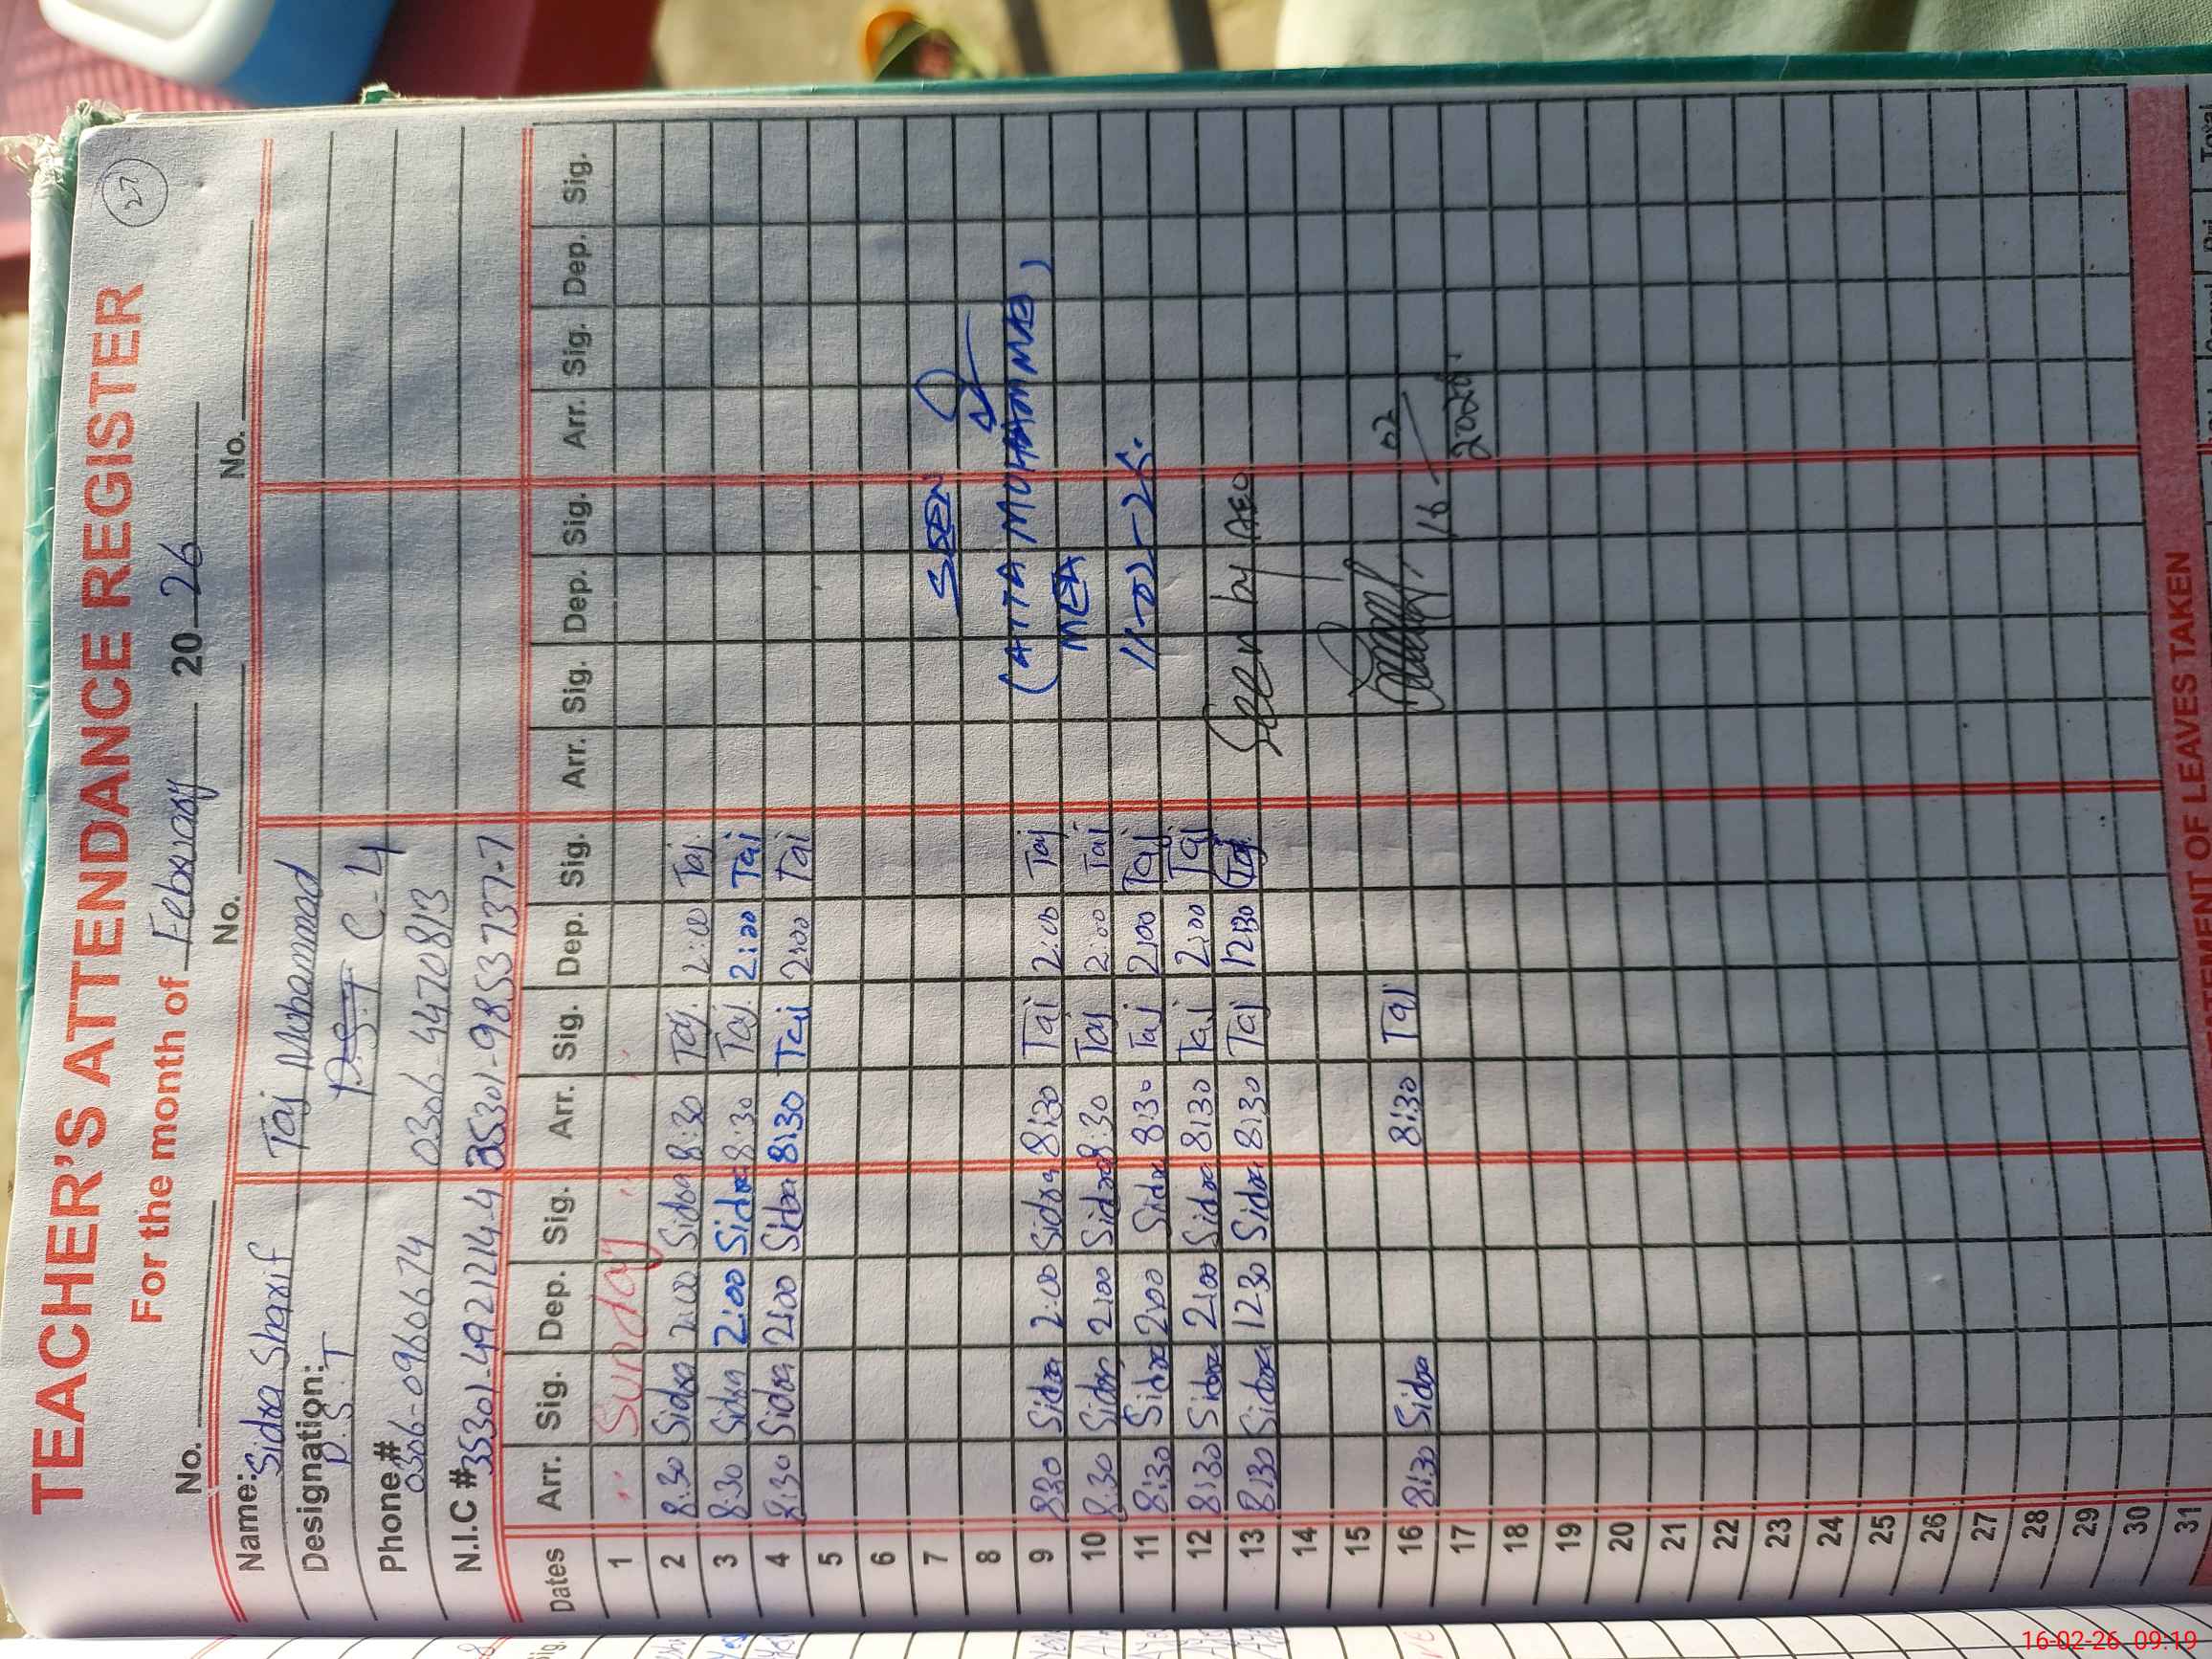 27
TEACHER'S ATTENDANCE REGISTER
For the month of February 20 26
No. No. No.
Name: Sidra Sharif Taj Muhammad
Designation: P.S.T P.S.T C-4
Phone # 0306-0960674 0306-4470813
N.I.C # 35301-4921214-4 35301-9853737-7
Dates Arr. Sig. Dep. Sig. Arr. Sig. Dep. Sig. Arr. Sig. Dep. Sig. Arr. Sig. Dep. Sig.
1 Sunday
2 8:30 Sidra 2:00 Sidra 8:30 Taj 2:00 Taj
3 8:30 Sidra 2:00 Sidra 8:30 Taj 2:00 Taj
4 8:30 Sidra 2:00 Sidra 8:30 Taj 2:00 Taj
5
6
7 SEEN
8
9 8:30 Sidra 2:00 Sidra 8:30 Taj 2:00 Taj (ATTA MOHAMMAD)
10 8:30 Sidra 2:00 Sidra 8:30 Taj 2:00 Taj MEA
11 8:30 Sidra 2:00 Sidra 8:30 Taj 2:00 Taj 11-02-26.
12 8:30 Sidra 2:00 Sidra 8:30 Taj 2:00 Taj
13 8:30 Sidra 12:30 Sidra 8:30 Taj 12:30 Taj Seen by AEO
14
15
16 8:30 Sidra 8:30 Taj 16 02
17 2026
18
19
20
21
22
23
24
25
26
27
28
29
30
31
OF LEAVES TAKEN
16-02-26 09:19